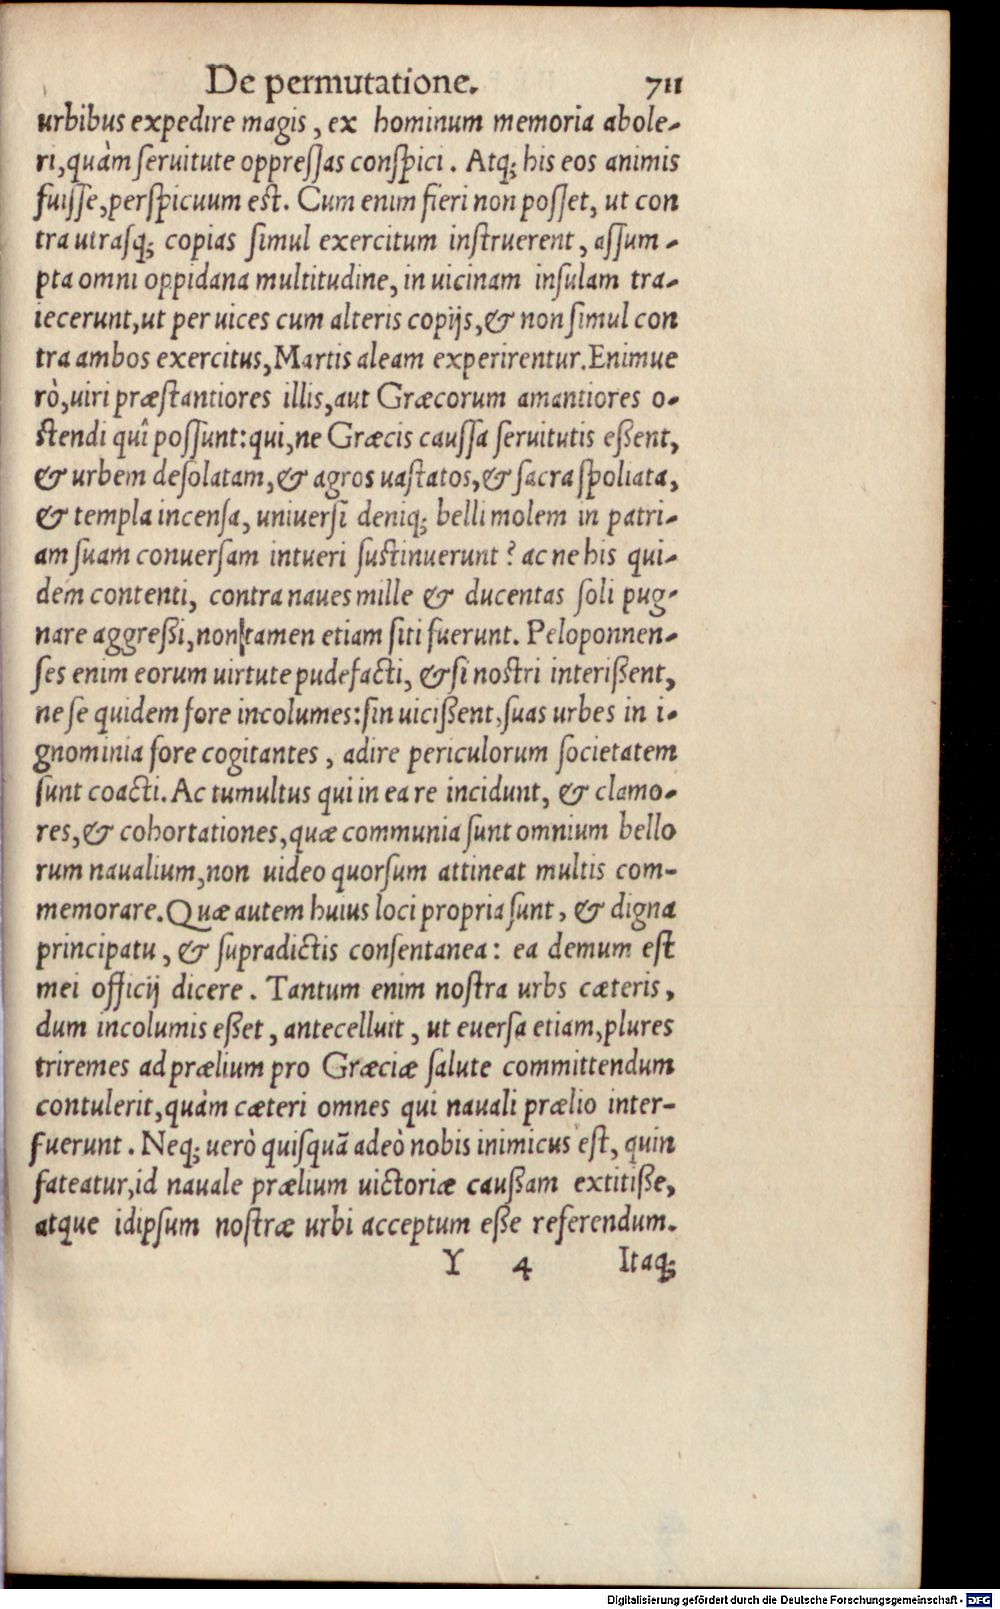 De permutatione. 711
urbibus expedire magis, ex hominum memoria abole-
ri, quàm ſeruitute oppreſſas conſpici. Atq; his eos animis
fuiſſe, perſpicuum est. Cum enim fieri non poſſet, ut con
tra utraſq; copias ſimul exercitum inſtruerent, aſſum-
pta omni oppidana multitudine, in uicinam inſulam tra-
iecerunt, ut per uices cum alteris copijs, & non ſimul con
tra ambos exercitus, Martis aleam experirentur. Enimue
rò, uiri præſtantiores illis, aut Græcorum amantiores o-
ſtendi quî poſſunt: qui, ne Græcis cauſſa ſeruitutis eßent,
& urbem deſolatam, & agros uaſtatos, & ſacra ſpoliata,
& templa incenſa, uniuerſi deniq; belli molem in patri-
am ſuam conuerſam intueri ſuſtinuerunt? ac ne his qui-
dem contenti, contra naues mille & ducentas ſoli pug-
nare aggreßi, non tamen etiam ſiti fuerunt. Peloponnen-
ſes enim eorum uirtute pudefacti, & ſi noſtri interißent,
ne ſe quidem fore incolumes: ſin uicißent, ſuas urbes in i-
gnominia fore cogitantes, adire periculorum ſocietatem
ſunt coacti. Ac tumultus qui in ea re incidunt, & clamo-
res, & cohortationes, quæ communia ſunt omnium bello
rum naualium, non uideo quorſum attineat multis com-
memorare. Quæ autem huius loci propria ſunt, & digna
principatu, & ſupradictis conſentanea: ea demum eſt
mei officij dicere. Tantum enim noſtra urbs cæteris,
dum incolumis eßet, antecelluit, ut euerſa etiam, plures
triremes ad prælium pro Græciæ ſalute committendum
contulerit, quàm cæteri omnes qui nauali prælio inter-
fuerunt. Neq; uerò quiſquã adeò nobis inimicus eſt, quin
fateatur, id nauale prælium uictoriæ cauſſam extitiße,
atque idipſum noſtræ urbi acceptum eße referendum.
Y 4 Itaq;
Digitalisierung gefördert durch die Deutsche Forschungsgemeinschaft - DFG